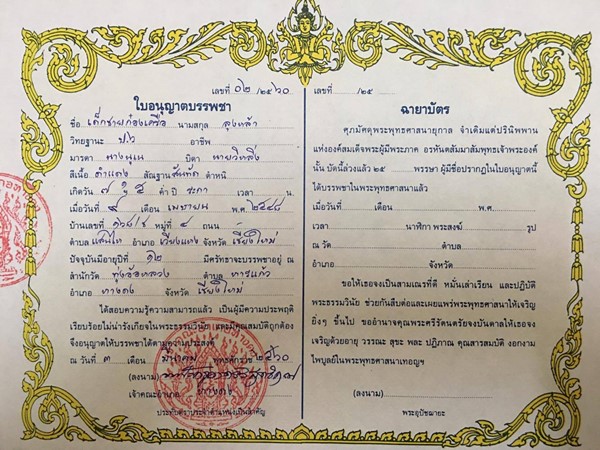 เลขที่ ๐๒ /๒๕๖๐
ใบอนุญาตบรรพชา
ชื่อ เด็กชายก๋องเครือ นามสกุล ลุงหล้า
วิทยฐานะ ป.๖ อาชีพ
มารดา นางนุเน บิดา นายวิหลิ่ง
สีเนื้อ ดำแดง สัณฐาน สันทัด ตำหนิ
เกิดวัน ๗ ปี ระกา เวลา น.
เมื่อวันที่ ๙ เดือน เมษายน พ.ศ. ๒๕๔๘
บ้านเลขที่ หมู่ที่ ๔ ถนน
ตำบล แสนไห อำเภอ เวียงแหง จังหวัด เชียงใหม่
ปัจจุบันมีอายุปีที่ ๑๒ มีศรัทธาจะบรรพชาอยู่ ณ
สำนักวัด ทุ่งอ้อหลวง ตำบล หารแก้ว
อำเภอ หางดง จังหวัด เชียงใหม่
ได้สอบความรู้ความสามารถแล้ว เป็นผู้มีความประพฤติ
เรียบร้อยไม่น่ารังเกียจในพระธรรมวินัย และมีคุณสมบัติถูกต้อง
จึงอนุญาตให้บรรพชาได้ตามความประสงค์
ณ วันที่ ๓ เดือน มีนาคม พุทธศักราช ๒๕๖๐
(ลงนาม)
เจ้าคณะอำเภอ หางดง
ประทับตราประจำตำแหน่งเป็นสำคัญ
เลขที่ /๒๕
ฉายาบัตร
ศุภมัสดุพระพุทธศาสนายุกาล จำเดิมแต่ปรินิพพาน
แห่งองค์สมเด็จพระผู้มีพระภาค อรหันตสัมมาสัมพุทธเจ้าพระองค์
นั้น บัดนี้ล่วงแล้ว ๒๕ พรรษา ผู้มีชื่อปรากฏในใบอนุญาตนี้
ได้บรรพชาในพระพุทธศาสนาแล้ว
เมื่อวันที่ เดือน พ.ศ.
เวลา นาฬิกา พระสงฆ์ รูป
ณ วัด ตำบล
อำเภอ จังหวัด
ขอให้เธอจงเป็นสามเณรที่ดี หมั่นเล่าเรียน และปฏิบัติ
พระธรรมวินัย ช่วยกันสืบต่อและเผยแพร่พระพุทธศาสนาให้เจริญ
ยิ่งๆ ขึ้นไป ขออำนาจคุณพระศรีรัตนตรัยจงบันดาลให้เธอจง
เจริญด้วยอายุ วรรณะ สุขะ พละ ปฏิภาณ คุณสารสมบัติ งอกงาม
ไพบูลย์ในพระพุทธศาสนาเทอญฯ
(ลงนาม)
พระอุปัชฌายะ